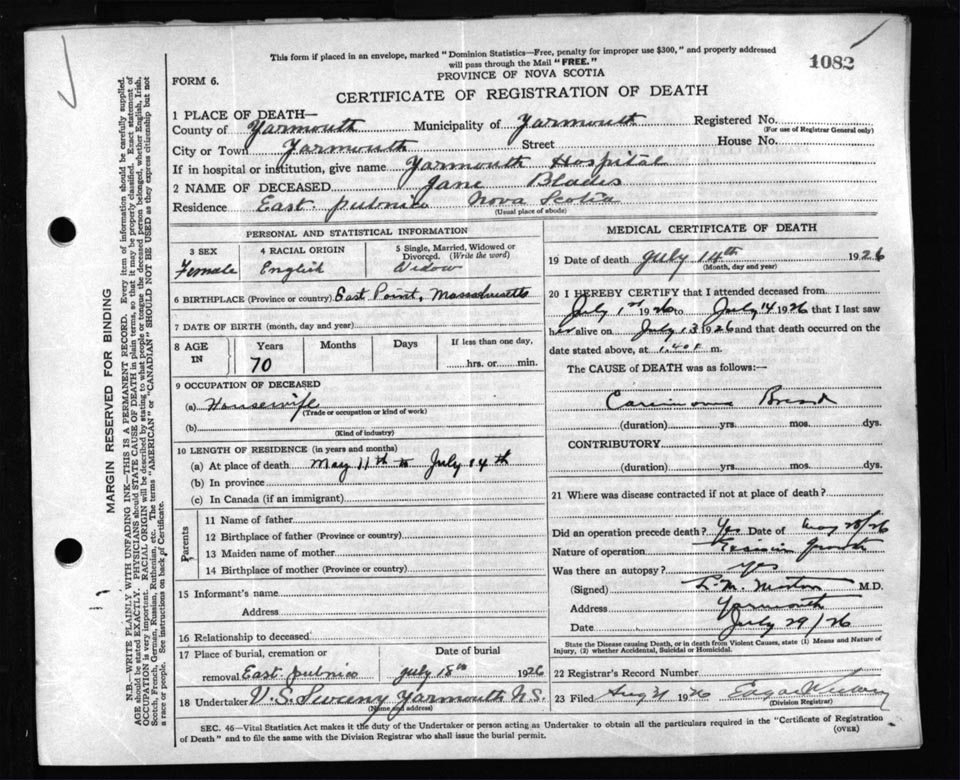 This form if placed in an envelope, marked "Dominion Statistics—Free, penalty for improper use $300," and properly addressed
will pass through the Mail "FREE."
1082
FORM 6.
PROVINCE OF NOVA SCOTIA
CERTIFICATE OF REGISTRATION OF DEATH
1 PLACE OF DEATH—
County of Yarmouth Municipality of Yarmouth Registered No.
(For use of Registrar General only)
City or Town Yarmouth Street House No.
If in hospital or institution, give name Yarmouth Hospital
2 NAME OF DECEASED Jane Blades
Residence East pubnico Nova Scotia
(Usual place of abode)
PERSONAL AND STATISTICAL INFORMATION
3 SEX 4 RACIAL ORIGIN 5 Single, Married, Widowed or Divorced. (Write the word)
Female English Widow
6 BIRTHPLACE (Province or country) East Point, Massachusetts
7 DATE OF BIRTH (month, day and year)
8 AGE IN Years Months Days If less than one day,
70 hrs. or min.
9 OCCUPATION OF DECEASED
(a) Housewife
(Trade or occupation or kind of work)
(b)
(Kind of industry)
10 LENGTH OF RESIDENCE (in years and months)
(a) At place of death May 11th to July 14th
(b) In province
(c) In Canada (if an immigrant)
Parents
11 Name of father
12 Birthplace of father (Province or country)
13 Maiden name of mother
14 Birthplace of mother (Province or country)
15 Informant's name
Address
16 Relationship to deceased
17 Place of burial, cremation or Date of burial
removal East pubnico July 15th 1926
18 Undertaker V. S. Sweeny Yarmouth N.S.
(Name and address)
MEDICAL CERTIFICATE OF DEATH
19 Date of death July 14th 1926
(Month, day and year)
20 I HEREBY CERTIFY that I attended deceased from
July 1st 1926 to July 14 1926 that I last saw
her alive on July 13 1926 and that death occurred on
date stated above, at 1.40 m.
The CAUSE OF DEATH was as follows:—
Carcinoma
(duration) yrs. mos. dys.
CONTRIBUTORY
(duration) yrs. mos. dys.
21 Where was disease contracted if not at place of death?
Did an operation precede death? Yes Date of May 28/26
Nature of operation
Was there an autopsy? Yes
(Signed) M.D.
Address Yarmouth
Date July 29/26
State the Disease causing Death, or in death from Violent Causes, state (1) Means and Nature of
Injury, (2) whether Accidental, Suicidal or Homicidal.
22 Registrar's Record Number
23 Filed Aug 1926
(Division Registrar)
SEC. 46—Vital Statistics Act makes it the duty of the Undertaker or person acting as Undertaker to obtain all the particulars required in the "Certificate of Registration
of Death" and to file the same with the Division Registrar who shall issue the burial permit.
(OVER)
MARGIN RESERVED FOR BINDING
N.B.—WRITE PLAINLY WITH UNFADING INK—THIS IS A PERMANENT RECORD. Every item of information should be carefully supplied.
AGE should be stated EXACTLY. PHYSICIANS should STATE CAUSE OF DEATH in plain terms, so that it may be properly classified. Exact statement of
OCCUPATION is very important. RACIAL ORIGIN will be described by stating to what people or tongue the deceased person belonged, whether English, Irish,
Scotch, French, German, Russian, Ruthenian, etc. The terms "AMERICAN" or "CANADIAN" SHOULD NOT BE USED as they express citizenship but not
a race or people. See instructions on back of Certificate.